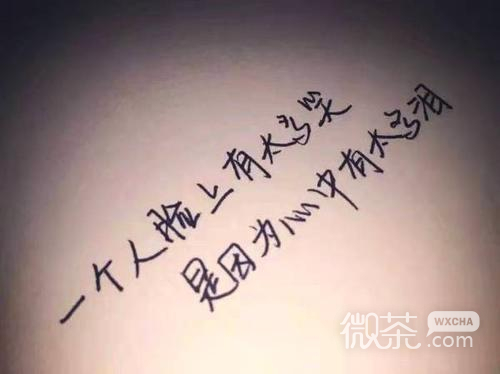 一个人脸上有太多笑
是因为心中有太多泪
微茶
WXCHA
.com